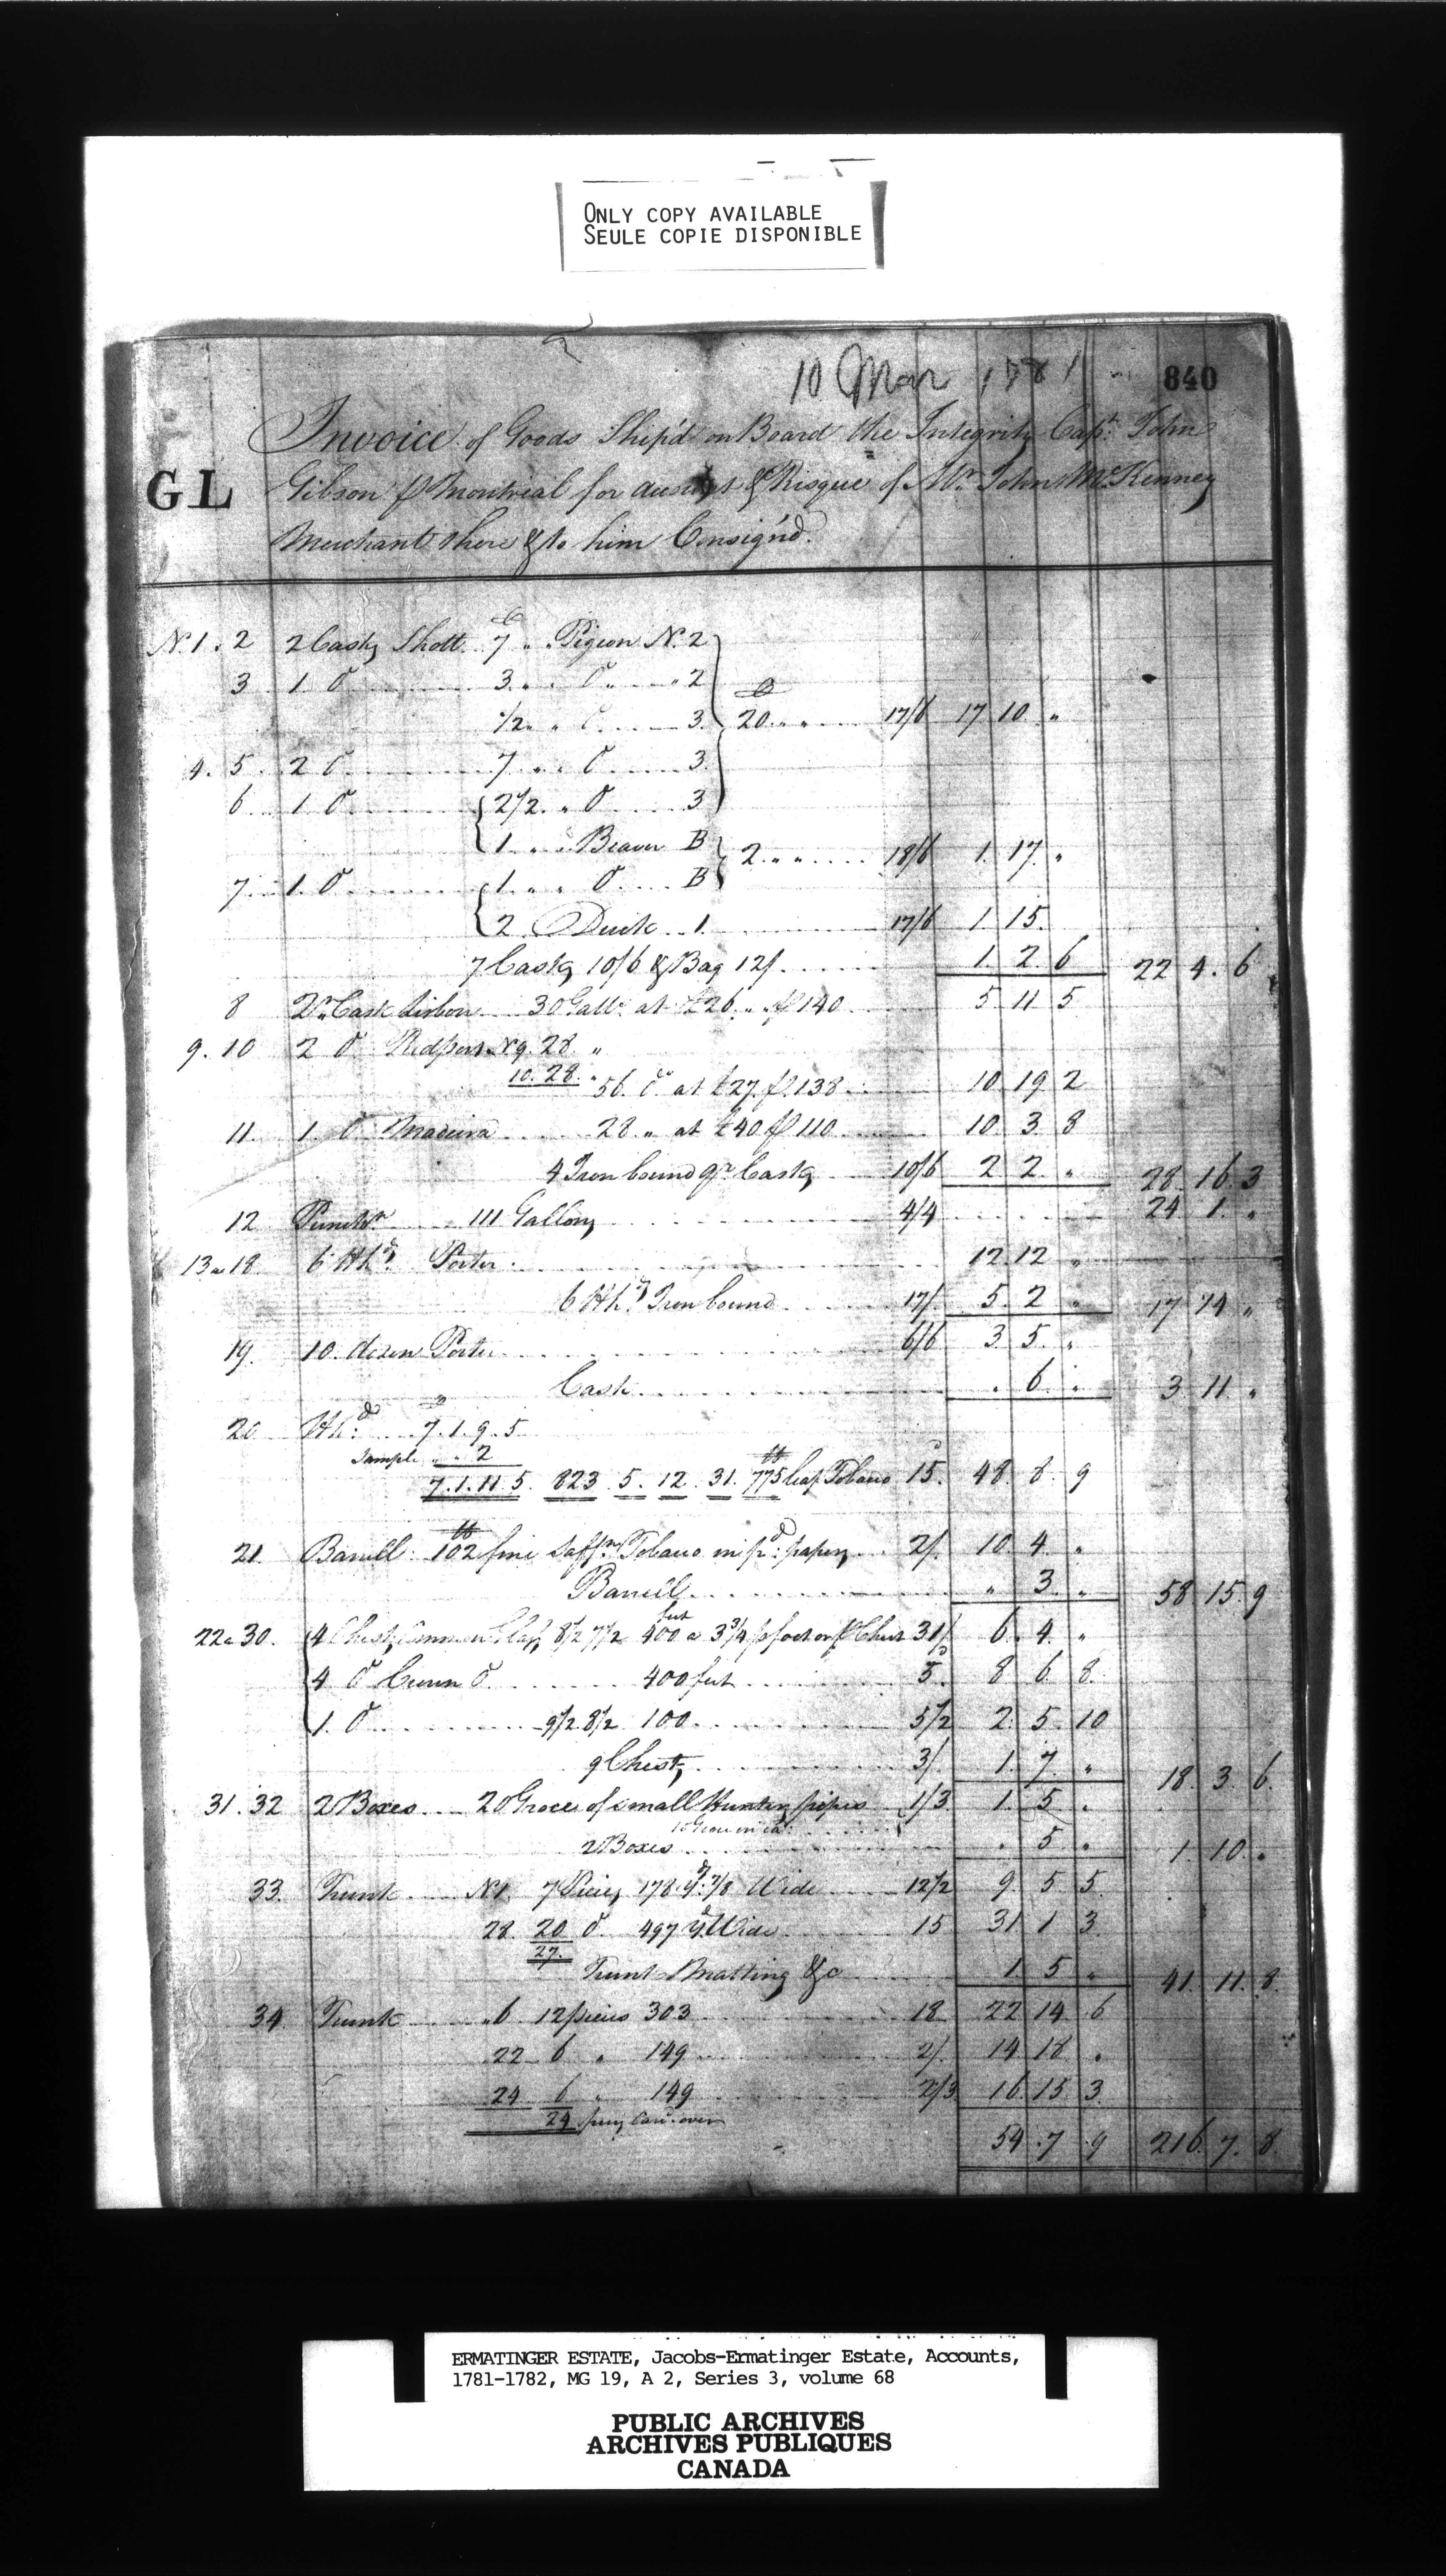 ONLY COPY AVAILABLE
SEULE COPIE DISPONIBLE
10 Mar 1781
840
Invoice of Goods Ship'd on Board the Integrity Capt. John
GL Gibson p Montreal for account & Risque of Mr. John McKenney
Merchant there & to him Consign'd.
No. 1. 2 2 Casks Shott C 7 " Pigeon No. 2
3 1 Do 3 " Do " 2
1/2 " Do 3 C 20 " " 17/6 17 10 "
4. 5. 2 Do 7 " " Do 3
6 1 Do 2 1/2 " Do 3
1 " " Beaver B 2 " " 18/6 1 17 "
7 1 Do 1 " " Do B
2 Duck 1 17/6 1 15
7 Casks 10/6 & Bag 12/ 1 2 6 22 4 6
8 Cask Lisbon 30 Galls. at £26 " " p 140 5 11 5
9. 10 2 Do Red port No. 9. 28 "
10. 28 " 56 Do at £27 p. 138 10 19 2
11. 1 Do Madeira 28 " at £40 p 110 10 3 8
4 Iron bound qr. Casks 10/6 2 2 " 28 16 3
12 Punchn. 111 Gallons 4/4 24 1 "
13 a 18 6 Hhds. Porter 12 12 "
6 Hhds. Iron bound 17/ 5 2 " 17 14 "
19. 10 dozen Porter 6/6 3 5 "
Cask " 6 " 3 11 "
20 Hhd. 7. 1. 9. 5
Sample " " 2
7. 1. 11. 5. 823 5. 12. 31. 775 lb leaf Tobacco 15. 48 8 9
21 Barrell 102 lb fine Tobacco in pd. papers 2/ 10 4 "
Barrell " 3 " 58 15 9
22 a 30. 4 Chests Common Glass 8 1/2 7 1/2 400 feet a 3 3/4 p foot or p Chest 31/ 6 4 "
4 Do Crown Do 400 feet 5 8 6 8
1 Do 9 1/2 8 1/2 100 5 1/2 2 5 10
9 Chests 3/ 1 7 " 18 3 6
31. 32 2 Boxes 20 Groce of small Hunting pipes 1/3 1 5 "
10 Groce in ea.
2 Boxes " 5 " 1 10 "
33. Trunk No. 1. 7 Pieces 178 yd. 7/8 Wide 12 1/2 9 5 5
28 20 Do 497 yd. Wide 15 31 1 3
27.
Trunk Matting &c 1 5 " 41 11 8
34. Trunk " 6 12 pieces 303 18 22 14 6
22 6 " 149 2/ 14 18 "
24 6 " 149 2/3 16 15 3
24 carrd. over
54 7 9 216 7 8
ERMATINGER ESTATE, Jacobs-Ermatinger Estate, Accounts,
1781-1782, MG 19, A 2, Series 3, volume 68
PUBLIC ARCHIVES
ARCHIVES PUBLIQUES
CANADA